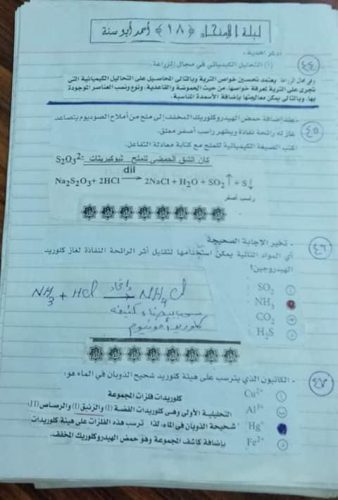 ليلة الامتحان (١٨) أحمد أبو سنة
اذكر أهمية:
٤٤
(١) التحليل الكيميائي في مجال الزراعة.
وفي مجال الزراعة: يعتمد تحسين خواص التربة وبالتالي المحاصيل على التحاليل الكيميائية التي
تجرى على التربة لمعرفة خواصها، من حيث الحموضة والقاعدية، ونوع ونسب العناصر الموجودة
بها، وبالتالي يمكن معالجتها بإضافة الأسمدة المناسبة.
٤٥
عند إضافة حمض الهيدروكلوريك المخفف إلى ملح من أملاح الصوديوم يتصاعد
غاز له رائحة نفاذة ويظهر راسب أصفر معلق.
اكتب الصيغة الكيميائية للملح مع كتابة معادلة التفاعل.
كان الشق الحمضي للملح ثيوكبريتات: S₂O₃²⁻
dil
Na₂S₂O₃ + 2HCl → 2NaCl + H₂O + SO₂↑ + S↓
راسب أصفر
٤٦
- تخير الإجابة الصحيحة
أي المواد التالية يمكن استخدامها لتقليل أثر الرائحة النفاذة لغاز كلوريد
الهيدروجين؟
SO₂
NH₃
CO₂
H₂S
NH₃ + HCl → NH₄Cl
سحب بيضاء كثيفة
كلوريد أمونيوم
٤٧
- الكاتيون الذي يترسب على هيئة كلوريد شحيح الذوبان في الماء هو:
Cu²⁺
Al³⁺
Hg⁺
Fe²⁺
كلوريدات فلزات المجموعة
التحليلية الأولى وهى كلوريدات الفضة (I) والزئبق (I) والرصاص (II)
شحيحة الذوبان في الماء، لذا ترسب هذه الفلزات على هيئة كلوريدات
بإضافة كاشف المجموعة وهو حمض الهيدروكلوريك المخفف.